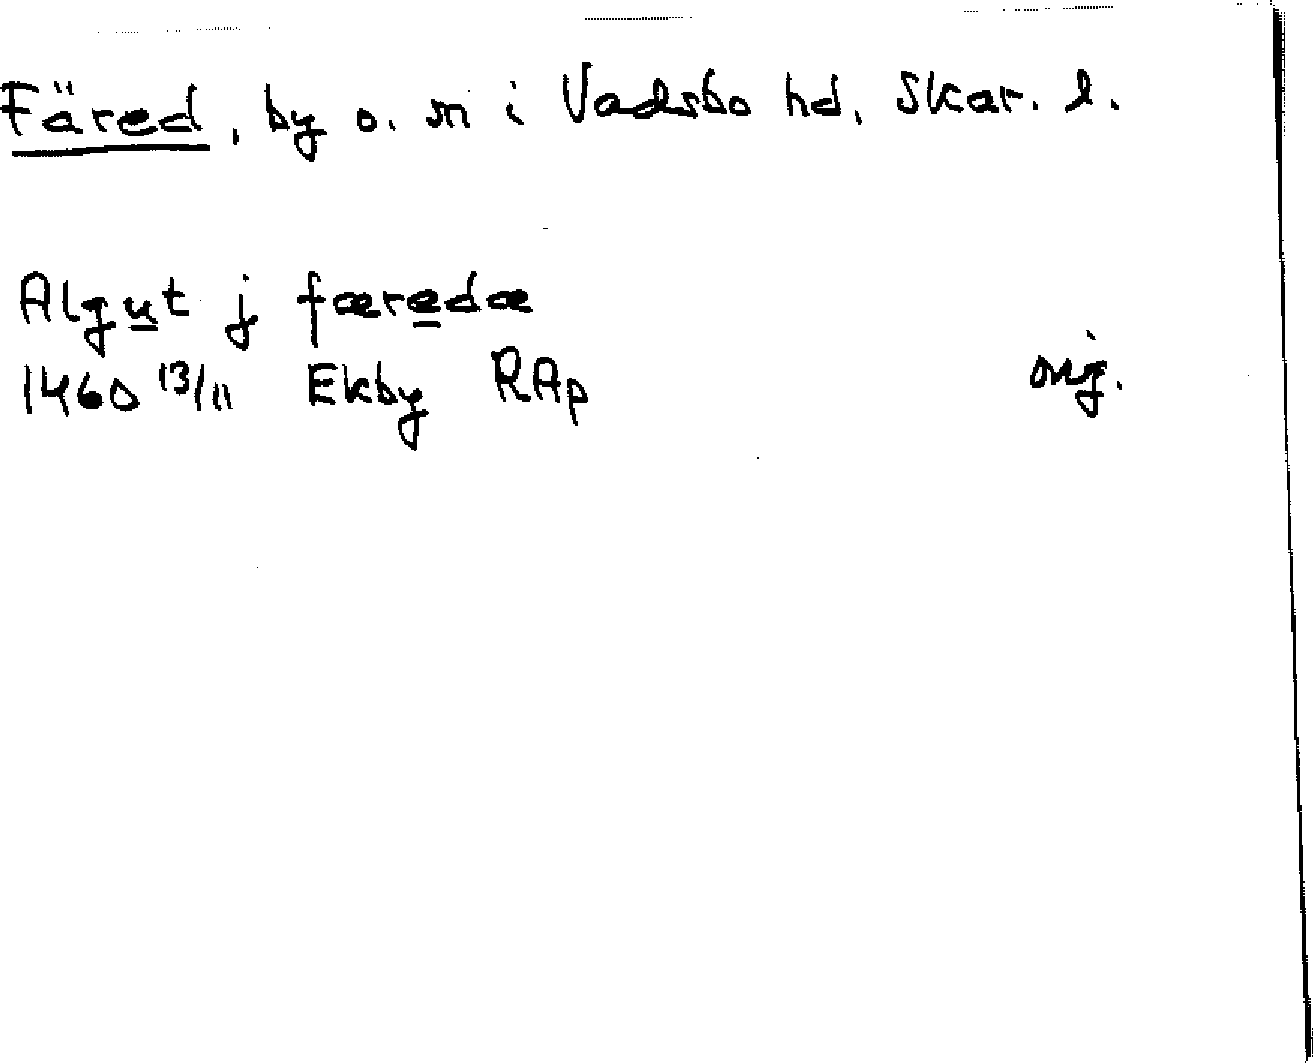 Färed, by o. sn i Vadsbo hd, Skar. l.
Algut j færedæ
1460 13/11 Ekby RAp orig.